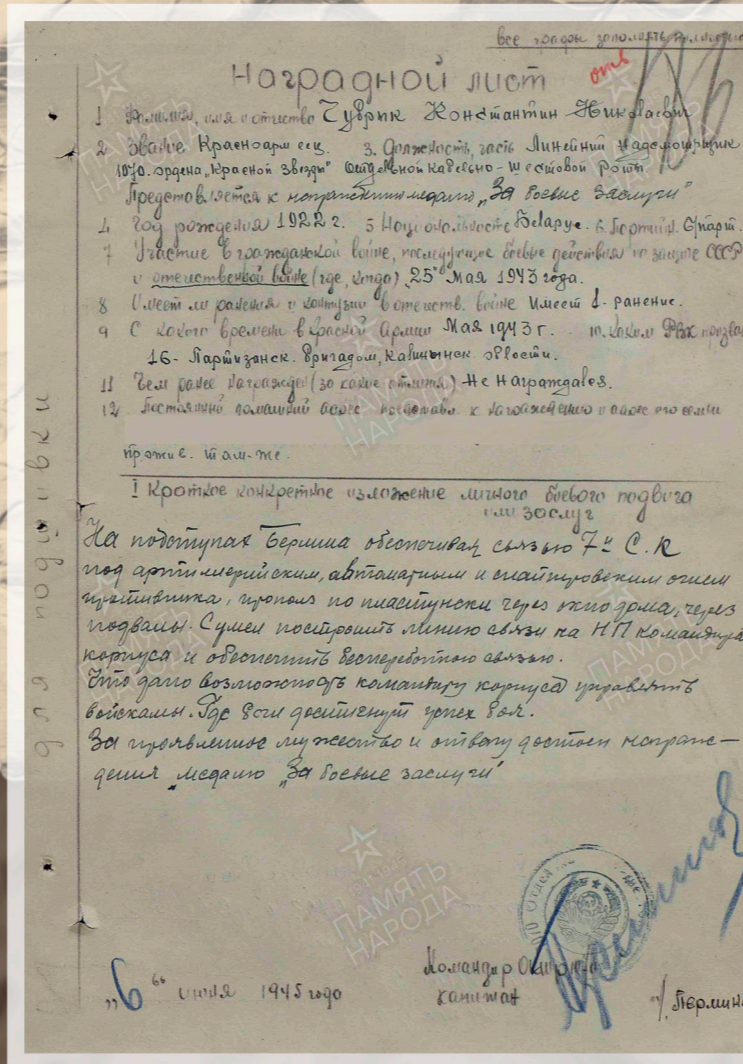 все графы заполнять полностью
Наградной лист
отв
1 Фамилия, имя и отчество Чубрик Константин Николаевич
2 Звание Красноармеец. 3. Должность, часть Линейний Надсмотрщик
1070. ордена „Красной Звезды" Отдельной Кабельно-Шестовой Роты
Представляется к награждению медалью „За боевые заслуги"
4 Год рождения 1922 г. 5 Национальность Беларус. 6. Партийн. б/парт.
7 Участие в гражданской войне, последующие боевые действия по защите СССР
и отечественной войне (где, когда) 25 Мая 1943 года.
8 Имеет ли ранения и контузии в отечеств. войне Имеет 1- ранение.
9 С какого времени в красной Армии Мая 1943 г. 10. Каким РВК призван
16- Партизанск. бригадом, Калинынск. области.
11 Чем ранее награжден (за какие отличия) Не Награждался.
12 Постоянный домашний адрес представл. к награждению и адрес его семьи
прожив. там-же.
I Краткое конкретное изложение личного боевого подвига
или заслуг
На подступах Берлина обеспечивая связью 7й С.К
под артиллерийским, автоматным и снайперовским огнем
противника, прополз по пластунски через окно дома, через
подвалы. Сумел построить линию связи на НП командира
корпуса и обеспечить бесперебойною связью.
Что дало возможность командиру корпуса управлять
войскамы. Где был достигнут успех боя.
За проявленное мужество и отвагу достоин награж-
дения медалю „За боевые заслуги"
„6" июня 1945 года
Командир
капитан
для подшивки
ПАМЯТЬ
НАРОДА
ПАМЯТЬ
НАРОДА
ПАМЯТЬ
НАРОДА
ПАМЯТЬ
НАРОДА